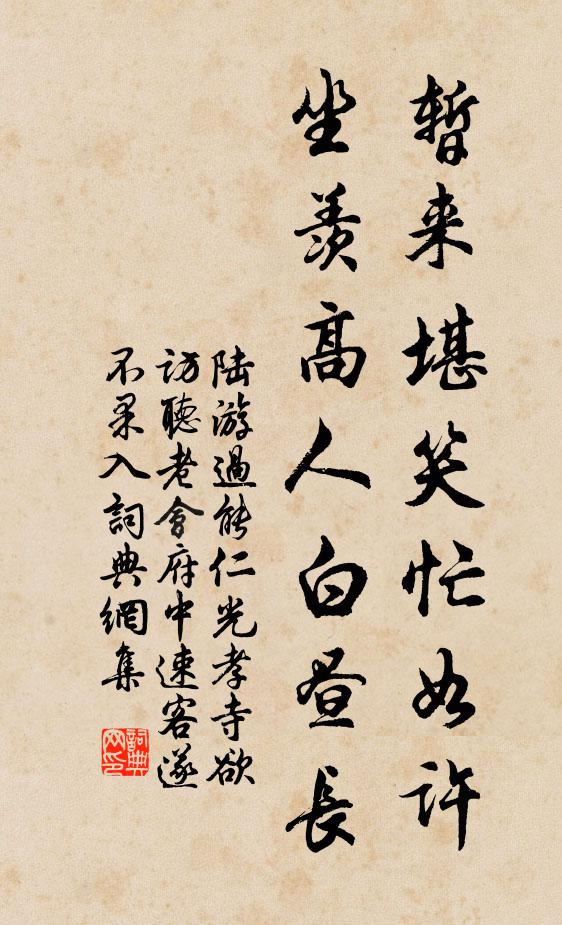 暫来堪笑忙如許
坐羨高人白昼長
陆游過能仁光孝寺欲
访聽老會府中速客遂
不果入詞典網集
詞典网印